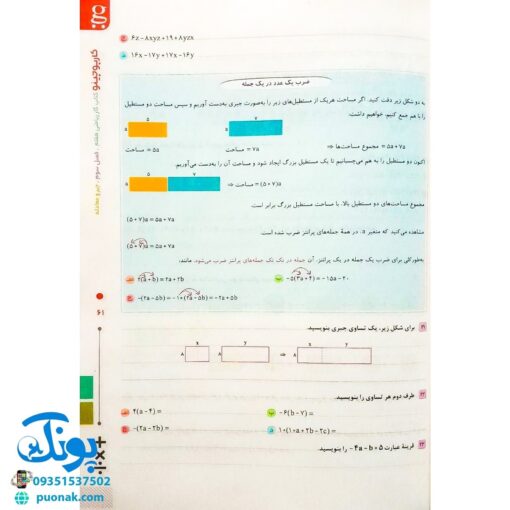 کارپوچینو کتاب کار ریاضی هفتم، فصل سوم، جبر و معادله
ج ۶z – ۸xyz + ۱۹ + ۸yzx
د ۱۶x – ۱۷y + ۱۷x – ۱۶y
ضرب یک عدد در یک جمله
به دو شکل زیر دقت کنید. اگر مساحت هریک از مستطیل‌های زیر را به‌صورت جبری به‌دست آوریم و سپس مساحت دو مستطیل
را با هم جمع کنیم، خواهیم داشت:
۵ ۷
a a
مساحت = ۵a مساحت = ۷a ⇒ مجموع مساحت‌ها = ۵a + ۷a
اکنون دو مستطیل را به هم می‌چسبانیم تا یک مستطیل بزرگ ایجاد شود و مساحت آن را به‌دست می‌آوریم.
۵ ۷
a ⇒ مساحت = (۵ + ۷)a
مجموع مساحت‌های دو مستطیل بالا، با مساحت مستطیل بزرگ برابر است
(۵ + ۷)a = ۵a + ۷a
مشاهده می‌کنید که متغیر a، در همهٔ جمله‌های پرانتز ضرب شده است.
(۵ + ۷)a = ۵a + ۷a
به‌طورکلی برای ضرب یک جمله در یک پرانتز، آن جمله در تک تک جمله‌های پرانتز ضرب می‌شود. مانند:
الف ۲(a + b) = ۲a + ۲b ب –۵(۳a + ۴) = –۱۵a – ۲۰
ج –(۲a – ۵b) = –۱۰(۲a – ۵b) = –۲a + ۵b
۶۱
۲۱ برای شکل زیر، یک تساوی جبری بنویسید.
x y x y
۸ ۸ ⇒ ۸
۲۲ طرف دوم هر تساوی را بنویسید.
الف ۴(a – ۴) = ب –۶(b – ۷) =
ج –(۲a – ۲b) = د ۱۰(۱۰a + ۲b – ۲c) =
۲۳ قرینهٔ عبارت ۵ + ۴a – b – را بنویسید.
پونک
09351537502
puonak.com